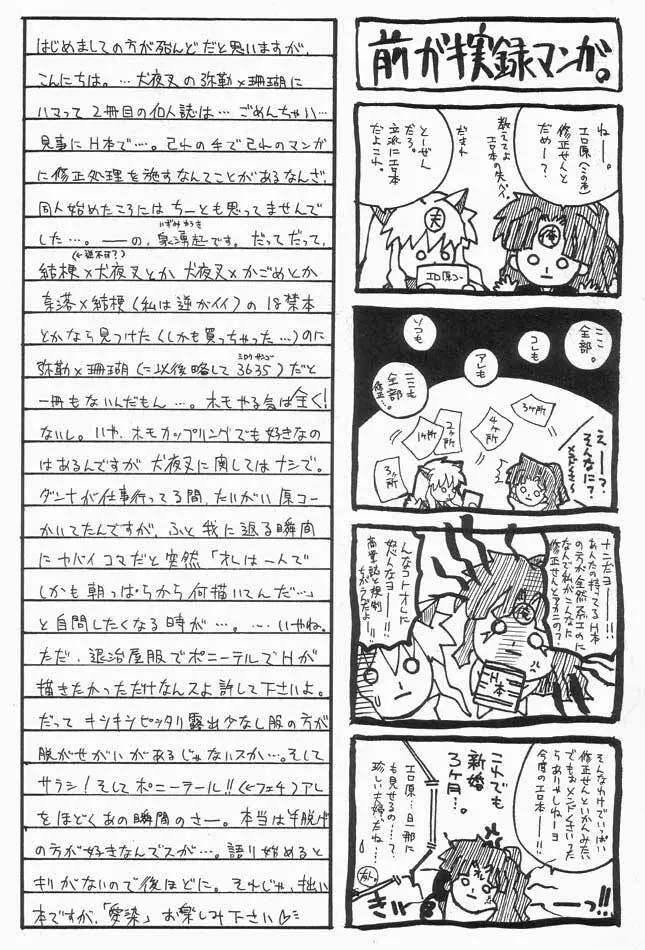 前がき実録マンガ。
ねー。
エロ原(この本)
修正せんと
だめー?
教えてよ
エロ本の先パイ。
だまれ
とーぜん
だろ。
立派にエロ本
だよコレ。
夫
俺
エロ原コー
ここ
全部。
コレも
アレも
ソコも
ここも
全部
修正…。
3ヶ所
4ヶ所
2ヶ所
1ヶ所
3ヶ所
えーっ?
そんなに?
ナニだヨー!!
あんたの持ってるH本
の方が全然エロいのに
なんで私がこんなに
修正せんとアカンの?
んなコトオレに
怒んなヨー!!
商業誌と規制
ちがうんだよー
俺
H本
そんなわけでいっぱい
修正せんといかんみたい
でもぉメンドくさいった
らありゃしねーヨ
今度のエロ本ー!!
これでも
新婚
3ヶ月…。
エロ原…旦那に
も見せるの…?
珍しい夫婦だね…
友人
ーっ!!
はじめましての方が殆んどだと思いますが、
こんにちは。…犬夜叉の弥勒×珊瑚に
ハマって2冊目の同人誌は…ごめんちゃい…
見事にH本で…。己れの手で己れのマンガ
に修正処理を施すなんてことがあるなんざ、
同人始めたころにはちーとも思ってませんで
した…。——の、泉湧起です。だってだって、
(←逆不可?)
桔梗×犬夜叉とか 犬夜叉×かごめとか
奈落×桔梗(私は逆がイイ)の18禁本
とかなら見つけた(しかも買っちゃった…)のに
弥勒×珊瑚(に以後略して3635)だと
一冊もないんだもん…。ホモやる気は全く!
ないし。いや、ホモカップリングでも好きなの
はあるんですが犬夜叉に関してはナシで。
ダンナが仕事行ってる間、たいがい原コー
かいてたんですが、ふと我に返る瞬間
にヤバイコマだと突然「オレは一人で
しかも朝っぱらから何描いてんだ…」
と自問したくなる時が…。…いやね。
ただ、退治屋服でポニーテルでHが
描きたかっただけなんスよ許して下さいよ。
だって キシキシピッタリ露出少なし服の方が
脱がせがいがあるじゃないスか…。そして
サラシ!そしてポニーテール!!(←フェチ)アレ
をほどくあの瞬間のさー。本当は半脱げ
の方が好きなんでスが…。語り始めると
キリがないので後ほどに。それじゃ、拙い
本ですが、「愛染」お楽しみ下さい